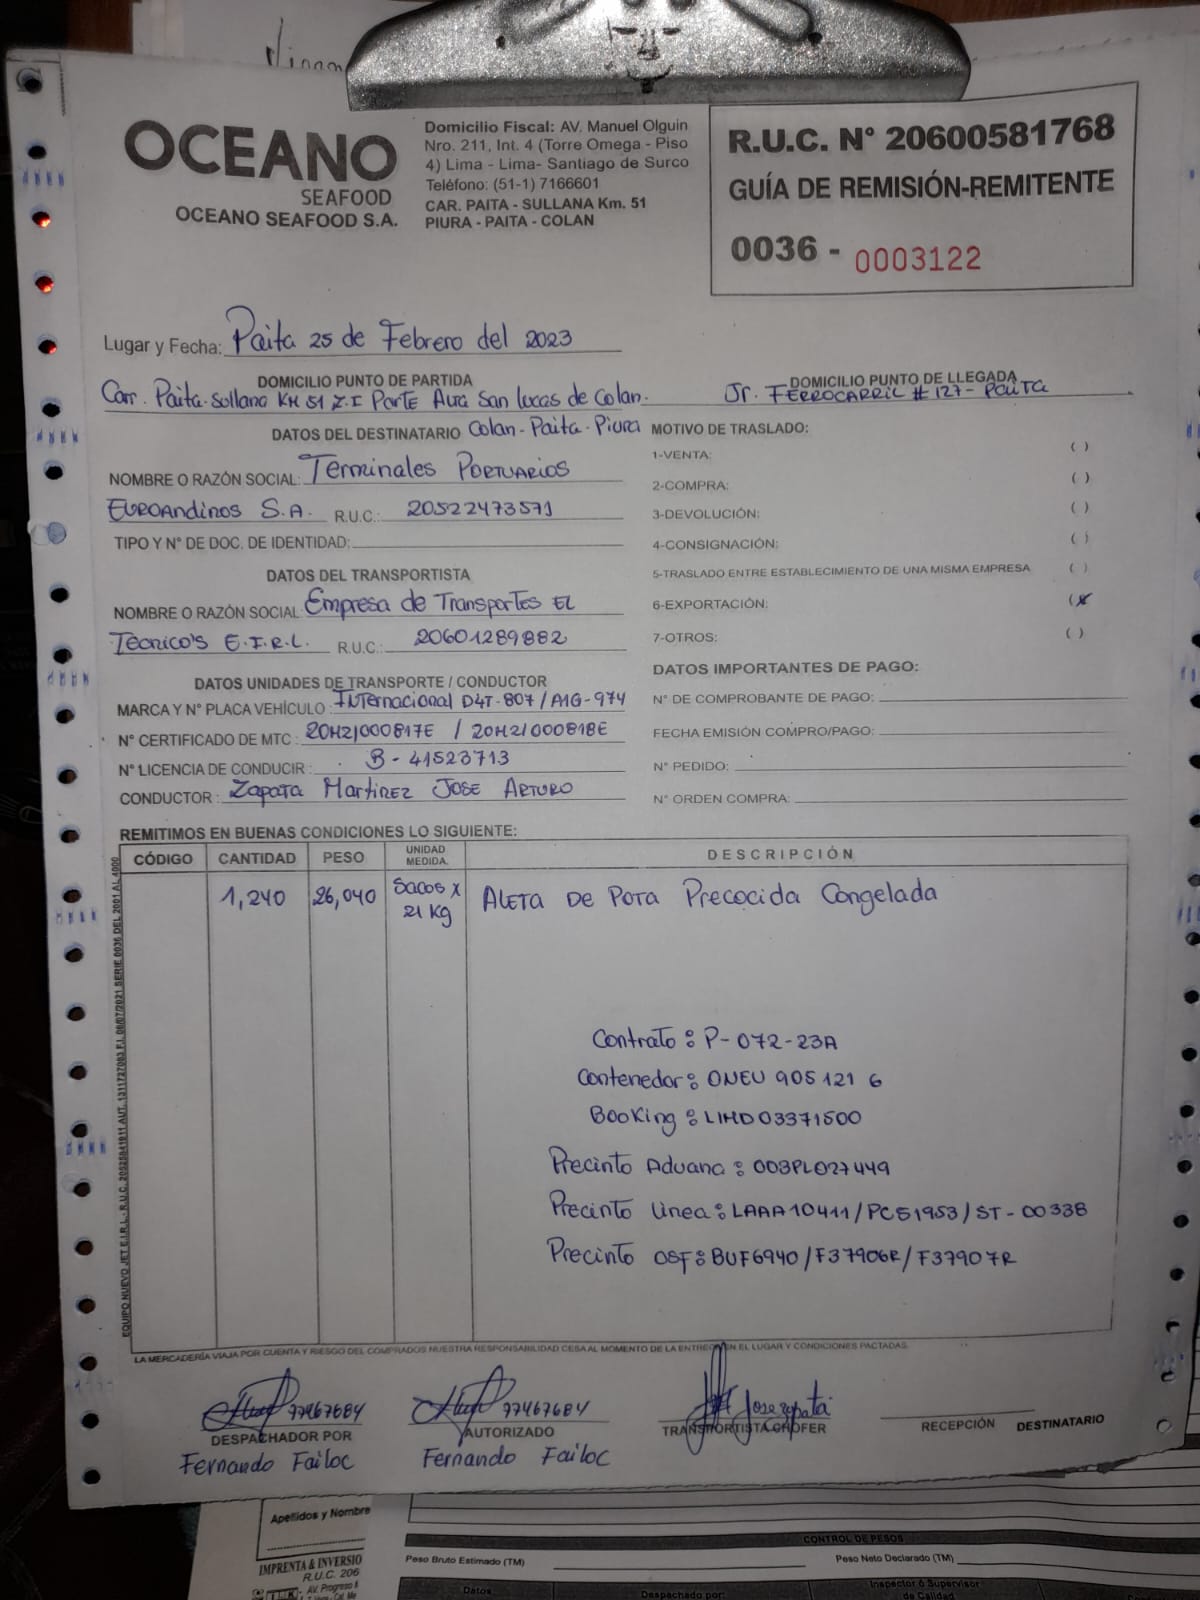 OCEANO
SEAFOOD
OCEANO SEAFOOD S.A.
Domicilio Fiscal: AV. Manuel Olguin
Nro. 211, Int. 4 (Torre Omega - Piso
4) Lima - Lima- Santiago de Surco
Teléfono: (51-1) 7166601
CAR. PAITA - SULLANA Km. 51
PIURA - PAITA - COLAN
R.U.C. N° 20600581768
GUÍA DE REMISIÓN-REMITENTE
0036 - 0003122
Lugar y Fecha: Paita 25 de Febrero del 2023
DOMICILIO PUNTO DE PARTIDA
Carr. Paita-Sullana KM 51 Z.I Parte Alta San Lucas de Colan.
Colan-Paita-Piura
DOMICILIO PUNTO DE LLEGADA
Jr. FERROCARRIL # 127- Paita
DATOS DEL DESTINATARIO
NOMBRE O RAZÓN SOCIAL: Terminales Portuarios
EUROANDINOS S.A. R.U.C.: 20522473571
TIPO Y N° DE DOC. DE IDENTIDAD:
DATOS DEL TRANSPORTISTA
NOMBRE O RAZÓN SOCIAL Empresa de Transportes EL
TECNICO'S E.I.R.L. R.U.C.: 20601289882
DATOS UNIDADES DE TRANSPORTE / CONDUCTOR
MARCA Y N° PLACA VEHÍCULO : INTernacional D4T-807/A1G-974
N° CERTIFICADO DE MTC : 20M21000817E / 20M21000818E
N° LICENCIA DE CONDUCIR : B-41523713
CONDUCTOR : Zapata Martinez JOSE ARTURO
MOTIVO DE TRASLADO:
1-VENTA: ( )
2-COMPRA: ( )
3-DEVOLUCIÓN: ( )
4-CONSIGNACIÓN: ( )
5-TRASLADO ENTRE ESTABLECIMIENTO DE UNA MISMA EMPRESA ( )
6-EXPORTACIÓN: (x)
7-OTROS: ( )
DATOS IMPORTANTES DE PAGO:
N° DE COMPROBANTE DE PAGO:
FECHA EMISIÓN COMPRO/PAGO:
N° PEDIDO:
N° ORDEN COMPRA:
REMITIMOS EN BUENAS CONDICIONES LO SIGUIENTE:
CÓDIGO CANTIDAD PESO UNIDAD MEDIDA. DESCRIPCIÓN
1,240 26,040 Sacos x 21 Kg ALETA DE POTA Precocida Congelada
Contrato : P-072-23A
Contenedor: ONEU 905 121 6
Booking : LIMD03371500
Precinto Aduana : 003PL027449
Precinto Linea: LAAA10411/PC51953/ST-00338
Precinto OSF: BUF6940/F37906R/F37907R
EQUIPO NUEVO JET E.I.R.L.- R.U.C. 20525841911 AUT. 1311727083 F.I. 06/07/2021 SERIE 0036 DEL 2001 AL 4000
LA MERCADERÍA VIAJA POR CUENTA Y RIESGO DEL COMPRADOS NUESTRA RESPONSABILIDAD CESA AL MOMENTO DE LA ENTREGA EN EL LUGAR Y CONDICIONES PACTADAS.
77467684
DESPACHADOR POR
Fernando Failoc
77467684
AUTORIZADO
Fernando Failoc
Jose zapata
TRANSPORTISTA CHOFER
RECEPCIÓN DESTINATARIO
Apellidos y Nombre
IMPRENTA & INVERSIO
R.U.C. 206
AV. Progreso
CONTROL DE PESOS
Peso Bruto Estimado (TM)
Peso Neto Declarado (TM)
Datos
Despachado por:
Inspector ó Supervisor
de Calidad